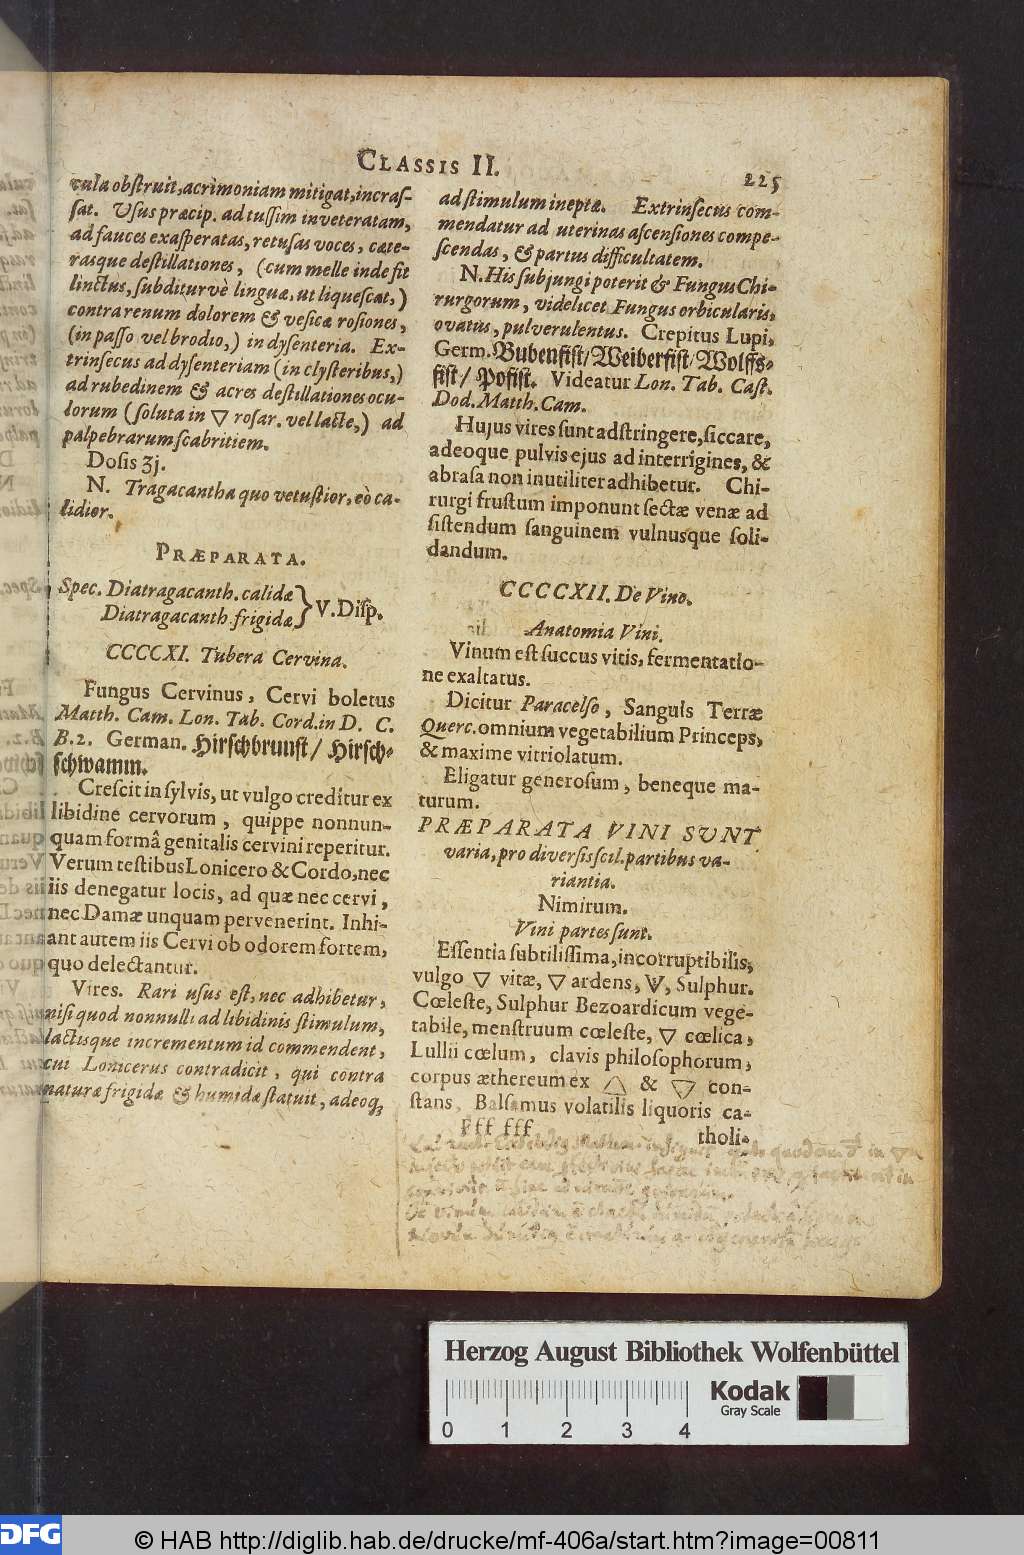 CLASSIS II.
225
cula obstruit, acrimoniam mitigat, incras-
sat. Usus præcip. ad tussim inveteratam,
ad fauces exasperatas, retusas voces, cæte-
rasque destillationes, (cum melle inde fit
linctus, subditur vè linguæ, ut liquescat,)
contra renum dolorem & vesicæ rosiones,
(in passo vel brodio,) in dysenteria. Ex-
trinsecus ad dysenteriam (in clysteribus,)
ad rubedinem & acres destillationes ocu-
lorum (soluta in ▽ rosar. vel lacte,) ad
palpebrarum scabritiem.
Dosis ʒj.
N. Tragacantha quo vetustior, eò ca-
lidior.
PRÆPARATA.
Spec. Diatragacanth. calidæ
Diatragacanth. frigidæ } V. Disp.
CCCCXI. Tubera Cervina.
Fungus Cervinus, Cervi boletus
Matth. Cam. Lon. Tab. Cord. in D. C.
B. 2. German. Hirschbrunst / Hirsch-
schwamm.
Crescit in sylvis, ut vulgo creditur ex
libidine cervorum, quippe nonnun-
quam formâ genitalis cervini reperitur.
Verum testibus Lonicero & Cordo, nec
iis denegatur locis, ad quæ nec cervi,
nec Damæ unquam pervenerint. Inhi-
ant autem iis Cervi ob odorem fortem,
quo delectantur.
Vires. Rari usus est, nec adhibetur,
nisi quod nonnulli ad libidinis stimulum,
lactisque incrementum id commendent,
cui Lonicerus contradicit, qui contra
naturæ frigidæ & humidæ statuit, adeoq;
ad stimulum ineptæ. Extrinsecus com-
mendatur ad uterinas ascensiones compe-
scendas, & partus difficultatem.
N. His subjungi poterit & Fungus Chi-
rurgorum, videlicet Fungus orbicularis,
ovatus, pulverulentus. Crepitus Lupi,
Germ. Bubenfist / Weiberfist / Wolffs-
fist / Pofist. Videatur Lon. Tab. Cast.
Dod. Matth. Cam.
Hujus vires sunt adstringere, siccare,
adeoque pulvis ejus ad interrigines, &
abrasa non inutiliter adhibetur. Chi-
rurgi frustum imponunt sectæ venæ ad
sistendum sanguinem vulnusque soli-
dandum.
CCCCXII. De Vino.
Anatomia Vini.
Vinum est succus vitis, fermentatio-
ne exaltatus.
Dicitur Paracelso, Sanguis Terræ
Querc. omnium vegetabilium Princeps,
& maxime vitriolatum.
Eligatur generosum, beneque ma-
turum.
PRÆPARATA VINI SUNT
varia, pro diversis scil. partibus va-
riantia.
Nimirum.
Vini partes sunt.
Essentia subtilissima, incorruptibilis,
vulgo ▽ vitæ, ▽ ardens, Sulphur.
Cœleste, Sulphur Bezoardicum vege-
tabile, menstruum cœleste, ▽ cœlica,
Lullii cœlum, clavis philosophorum,
corpus æthereum ex △ & ▽ con-
stans, Balsamus volatilis liquoris ca-
fff fff
tholi-
Herzog August Bibliothek Wolfenbüttel
Kodak
Gray Scale
0 1 2 3 4
DFG
© HAB http://diglib.hab.de/drucke/mf-406a/start.htm?image=00811